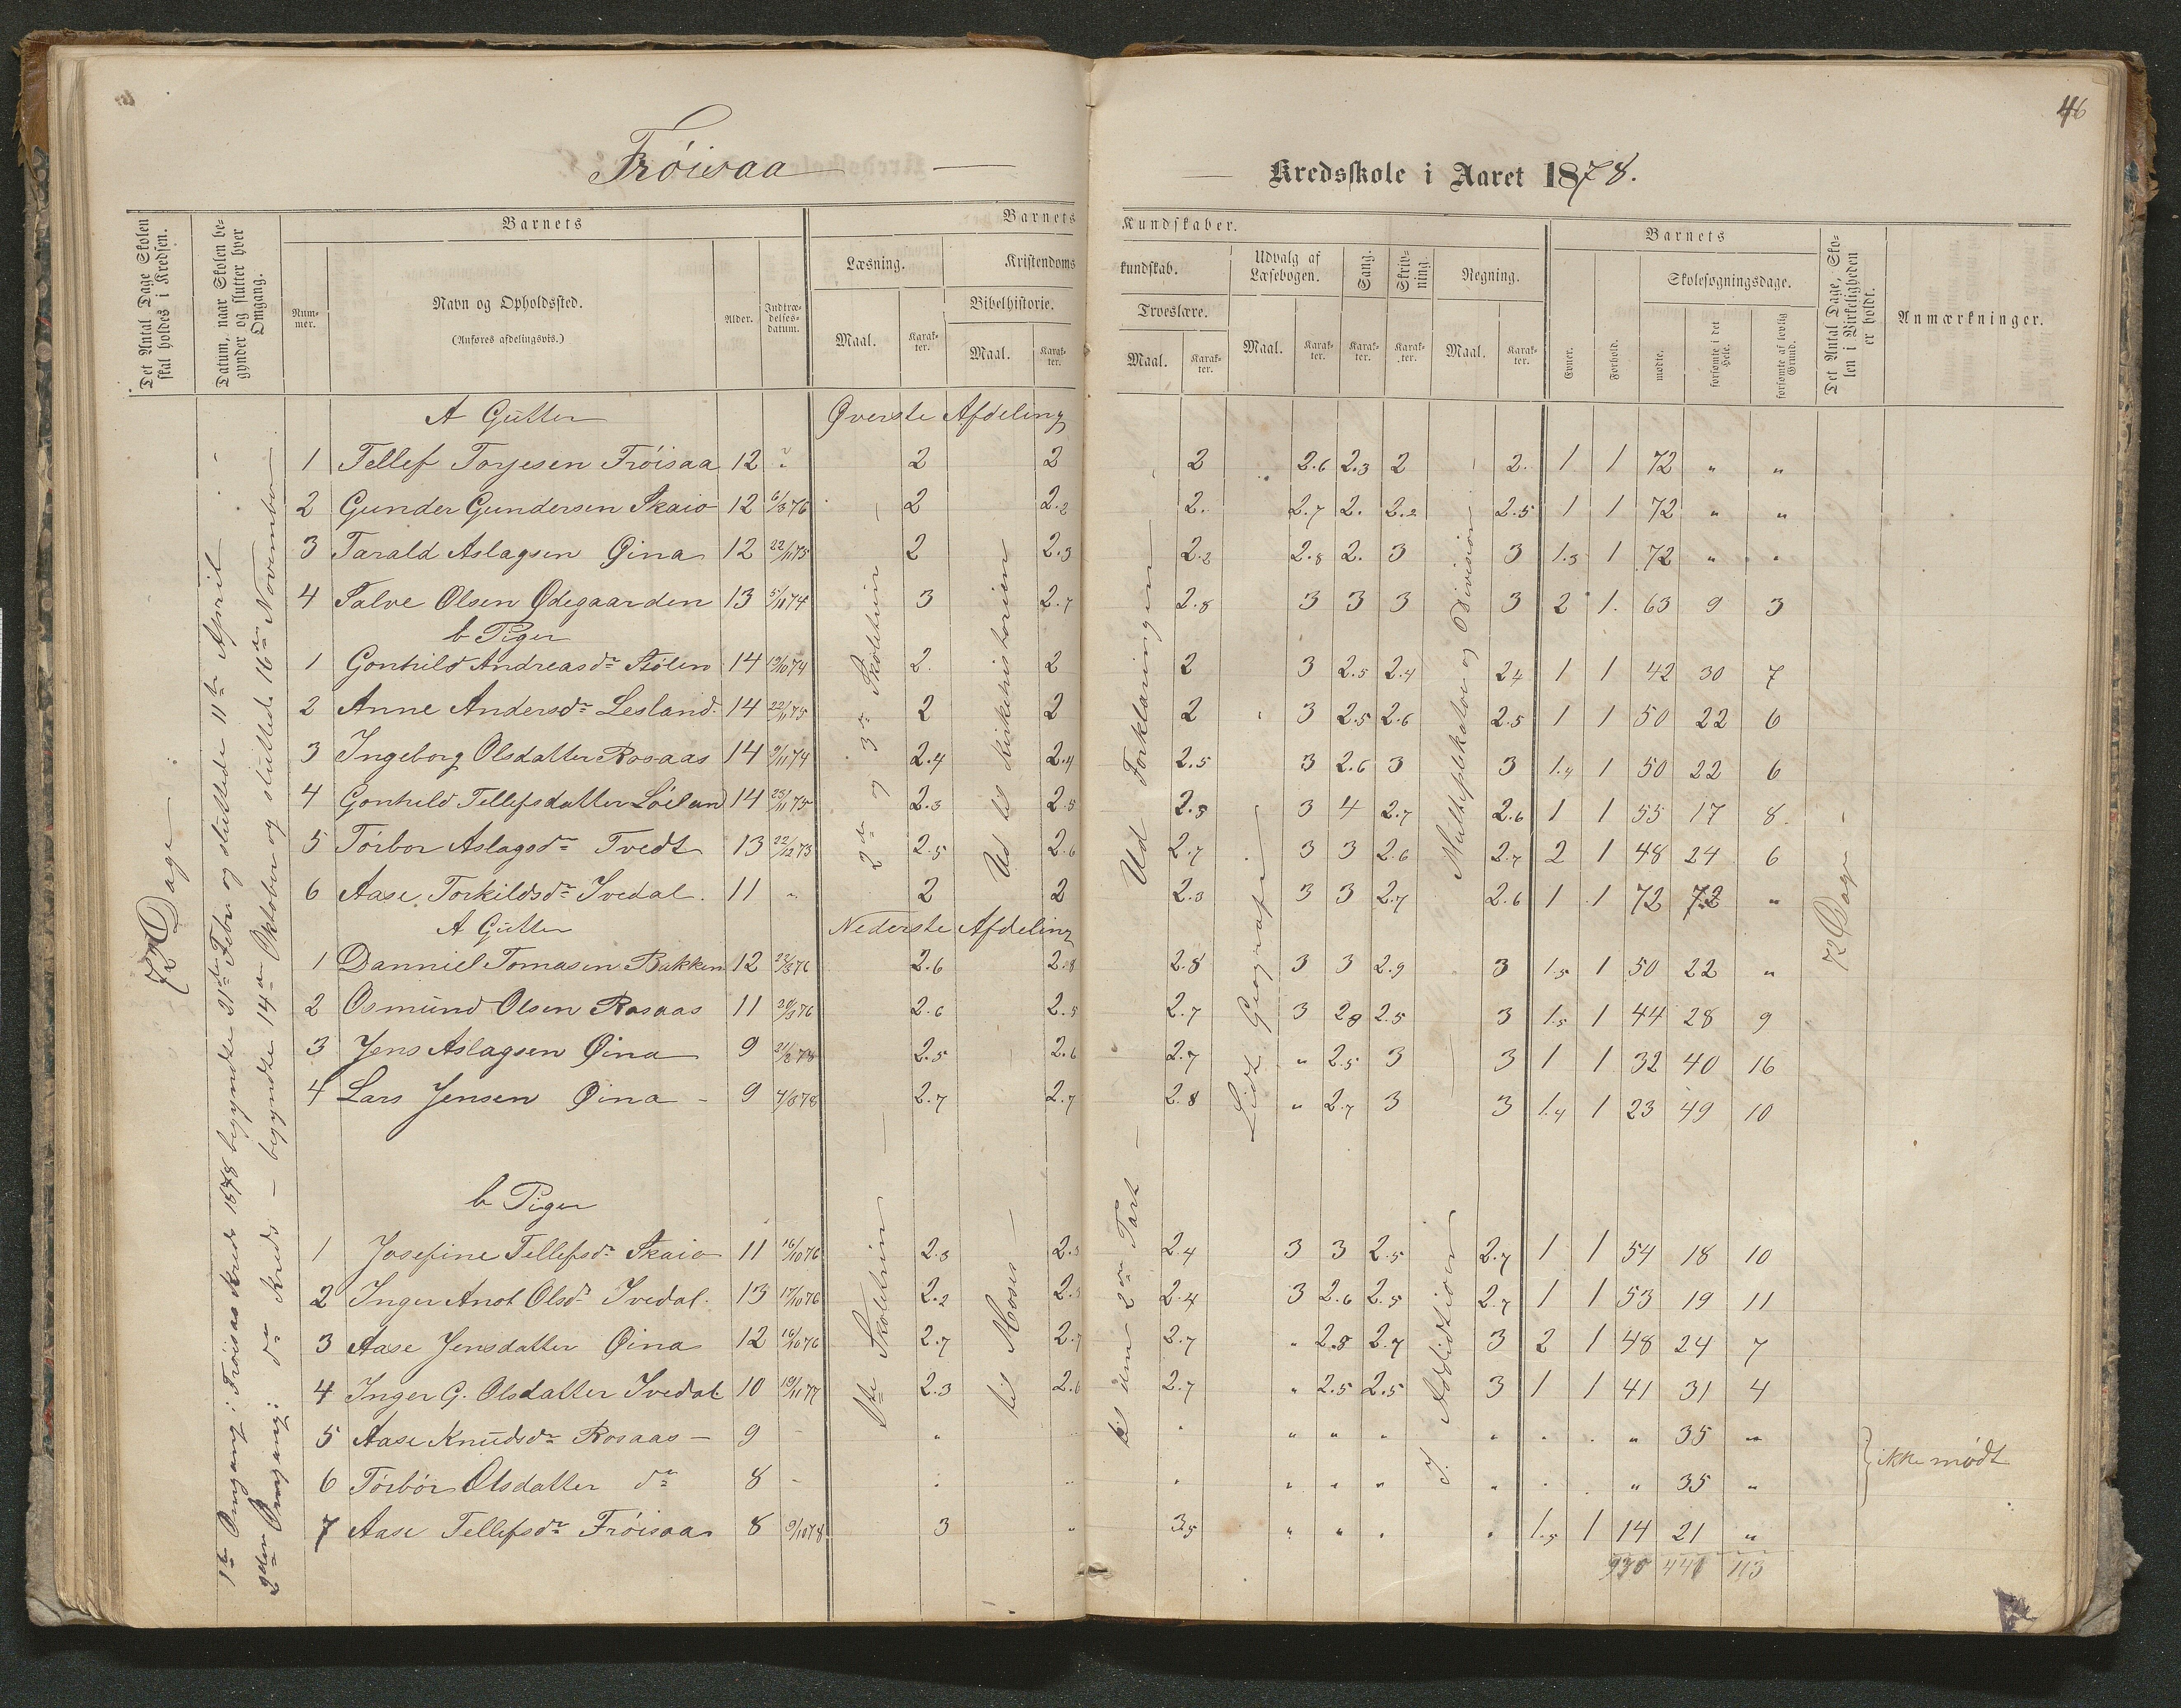 46
Frôisaa — Kredsskole i Aaret 1878.
Det Antal Dage Skolen skal holdes i Kredsen.
Datum, naar Skolen begynder og slutter hver Omgang.
Barnets
Nummer.
Navn og Opholdssted.
(Anføres afdelingsvis.)
Alder.
Indtrædelsesdatum.
Barnets Kundskaber.
Læsning.
Maal.
Karakter.
Kristendomskundskab.
Bibelhistorie.
Maal.
Karakter.
Troeslære.
Maal.
Karakter.
Udvalg af Læsebogen.
Maal.
Karakter.
Sang.
Karakter.
Skrivning.
Karakter.
Regning.
Maal.
Karakter.
Barnets
Evner.
Forhold.
Skolesøgningsdage.
mødte.
forsømte i det Hele.
forsømte af lovlig Grund.
Det Antal Dage, Skolen i Virkeligheden er holdt.
Anmærkninger.
72 Dage
1ste Omgang: Frôisaa Kreds 1878 begyndte 21de Febr og sluttede 11te April
2den Omgang: do Kreds – begyndte 14de Oktober og sluttede 16de November
A Gutter Øverste Afdeling
1 Tellef Torjesen Frôisaa 12 " 2 2 2 2.6 2.3 2 2. 1 1 72 " "
2 Gunder Gundersen Skaio 12 6/3 76 2 2.2 2. 2.7 2. 2.2 2.5 1 1 72 " "
3 Tarald Aslagsen Øina 12 22/11 75 2 2.3 2.2 2.8 2. 3 3 1.3 1 72 " "
4 Salve Olsen Ødegaarden 13 5/11 74 3 2.7 2.8 3 3 3 3 2 1. 63 9 3
b Piger
1 Gonhild Andreasdr Stôlen 14 19/10 74 2. 2 2 3 2.5 2.4 24 1 1 42 30 7
2 Anne Andersdr Lesland 14 22/11 75 2 2 2 3 2.5 2.6 2.5 1 1 50 22 6
3 Ingeborg Olsdatter Rosaas 14 9/11 74 2.4 2.4 2.5 3 2.6 3 3 1.4 1 50 22 6
4 Gonhild Tellefsdatter Lôiland 14 25/11 75 2.3 2.5 2.5 3 4 2.7 2.6 1 1 55 17 8
5 Tôrbor Aslagsdr Tvedt 13 22/12 73 2.5 2.6 2.7 3 3 2.6 2.7 2 1 48 24 6
6 Aase Torkildsdr Ivedal 11 " 2 2 2.3 3 3 2.7 2.6 1 1 72 72 "
2de og 3die Skoletrin
Ud til Kirkehistorien
Ud Forklaringen
Lidt Geografi
Multiplikation og Division
72 Dage
A Gutter Nederste Afdeling
1 Danniel Tomasen Bakken 12 22/3 76 2.6 2.8 2.8 3 3 2.9 3 1.5 1 50 22 "
2 Osmund Olsen Rosaas 11 30/3 76 2.6 2.5 2.7 3 28 2.5 3 1.5 1 44 28 9
3 Jens Aslagsen Øina 9 21/2 78 2.5 2.6 2.7 " 2.5 3 3 1 1 32 40 16
4 Lars Jensen Øina 9 4/3 78 2.7 2.7 2.8 " 2.7 3 3 1.4 1 23 49 10
b Piger
1 Josefine Tellefsdr Skaio 11 16/10 76 2.3 2.3 2.4 3 3 2.5 2.7 1 1 54 18 10
2 Inger Anot Olsdr Ivedal 13 17/10 76 2.2 2.3 2.4 3 2.6 2.5 2.7 1 1 53 19 11
3 Aase Jensdatter Øina 12 16/10 76 2.7 2.7 2.7 " 2.8 2.7 3 2 1 48 24 7
4 Inger G. Olsdatter Ivedal 10 19/11 77 2.3 2.6 2.7 " 2.5 2.5 3 1 1 41 31 4
5 Aase Knudsdr Rosaas – 9 – " " " " " " 35 " } ikke mødt
6 Tôrbôr Olsdatter do 8 – " " " " " " 35 "
7 Aase Tellefsdr Frôisaa 8 9/11 78 3 " 3.5 " " " " 1.5 1 14 21 "
1ste Skoletrin
til Moses
til den 2den Part
I Addidtion
930 441 113